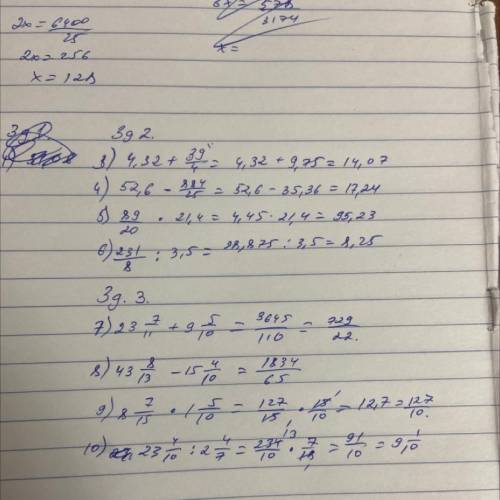 2x = 6400/25
2x = 256
x = 128
578
3174
x =
Зд 2.
3) 4,32 + 39/4 = 4,32 + 9,75 = 14,07
4) 52,6 - 884/25 = 52,6 - 35,36 = 17,24
5) 89/20 · 21,4 = 4,45 · 21,4 = 95,23
6) 231/8 : 3,5 = 28,875 : 3,5 = 8,25
Зд. 3.
7) 23 7/11 + 9 5/10 = 3645/110 = 729/22.
8) 43 8/13 - 15 4/10 = 1834/65
9) 8 7/15 · 1 5/10 = 127/15 · 15/10 = 12,7 = 127/10.
10) 23 4/10 : 2 4/7 = 234/10 · 7/18 = 91/10 = 9 1/10